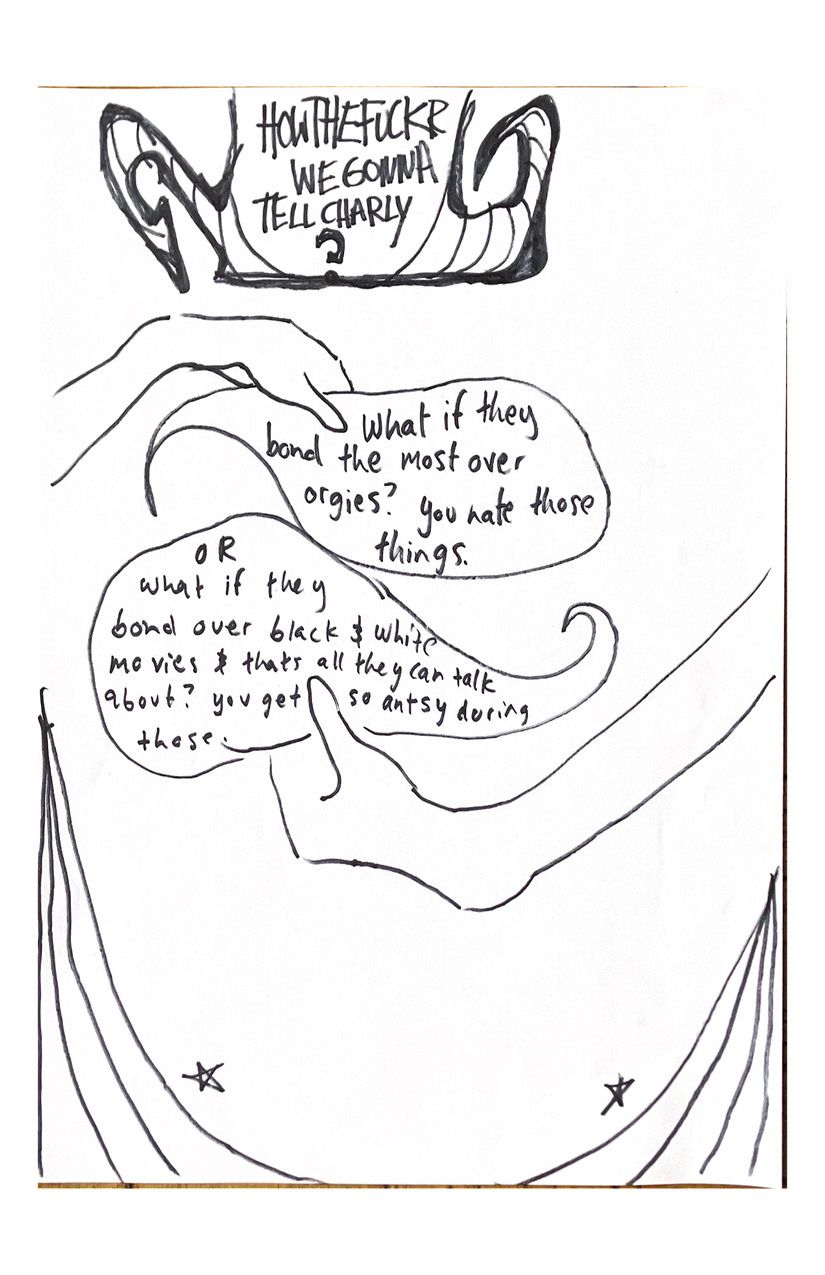 HOWTHEFUCKR
WEGONNA
TELL CHARLY
?
What if they
bond the most over
orgies? you hate those
things.
OR
what if they
bond over black & white
movies & thats all they can talk
about? you get so antsy during
those.